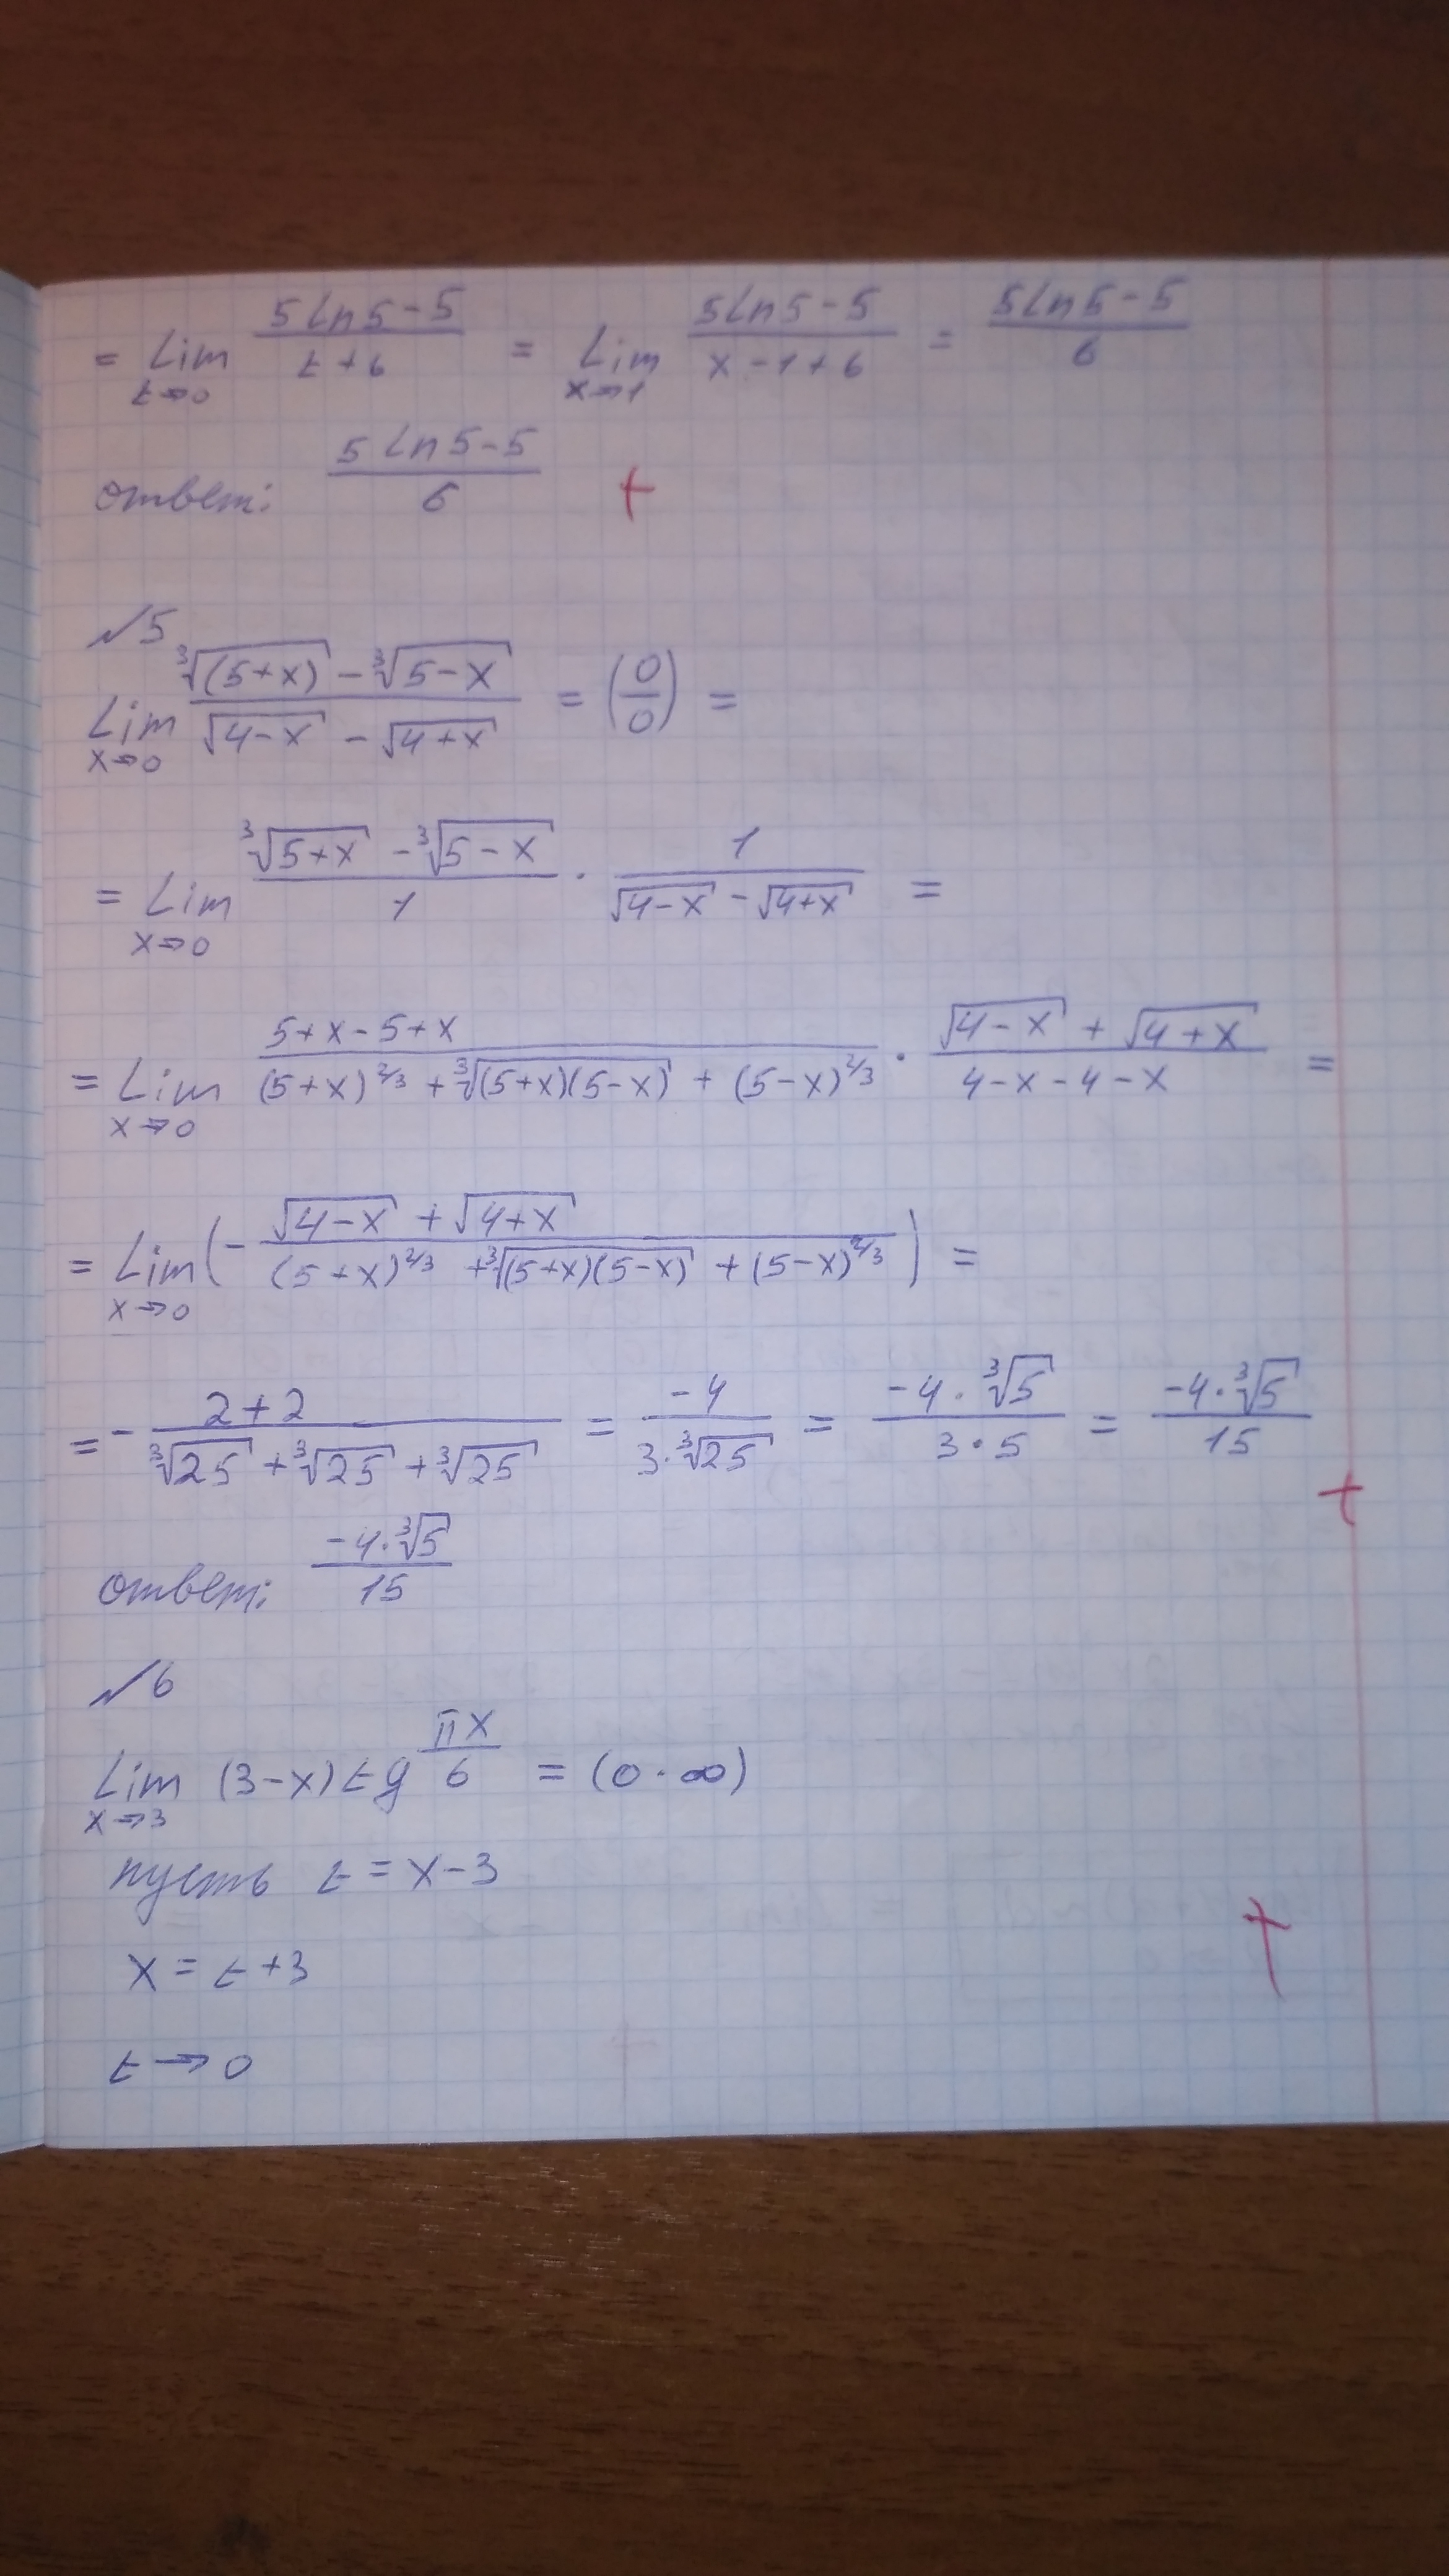 = Lim t→0 (5Ln5-5)/(t+6) = Lim x→1 (5Ln5-5)/(x-1+6) = (5Ln5-5)/6
ответ: (5Ln5-5)/6 +
№5
Lim x→0 (∛(5+x) - ∛(5-x))/(√(4-x) - √(4+x)) = (0/0) =
= Lim x→0 (∛(5+x) - ∛(5-x))/1 · 1/(√(4-x) - √(4+x)) =
= Lim x→0 (5+x-5+x)/((5+x)^2/3 + ∛((5+x)(5-x)) + (5-x)^2/3) · (√(4-x) + √(4+x))/(4-x-4-x) =
= Lim x→0 (- (√(4-x) + √(4+x))/((5+x)^2/3 + ∛((5+x)(5-x)) + (5-x)^2/3)) =
= - (2+2)/(∛25 + ∛25 + ∛25) = -4/(3·∛25) = (-4·∛5)/(3·5) = (-4·∛5)/15
+
ответ: (-4·∛5)/15
№6
Lim x→3 (3-x)tg πx/6 = (0·∞)
пусть t = x-3
+
x = t+3
t→0